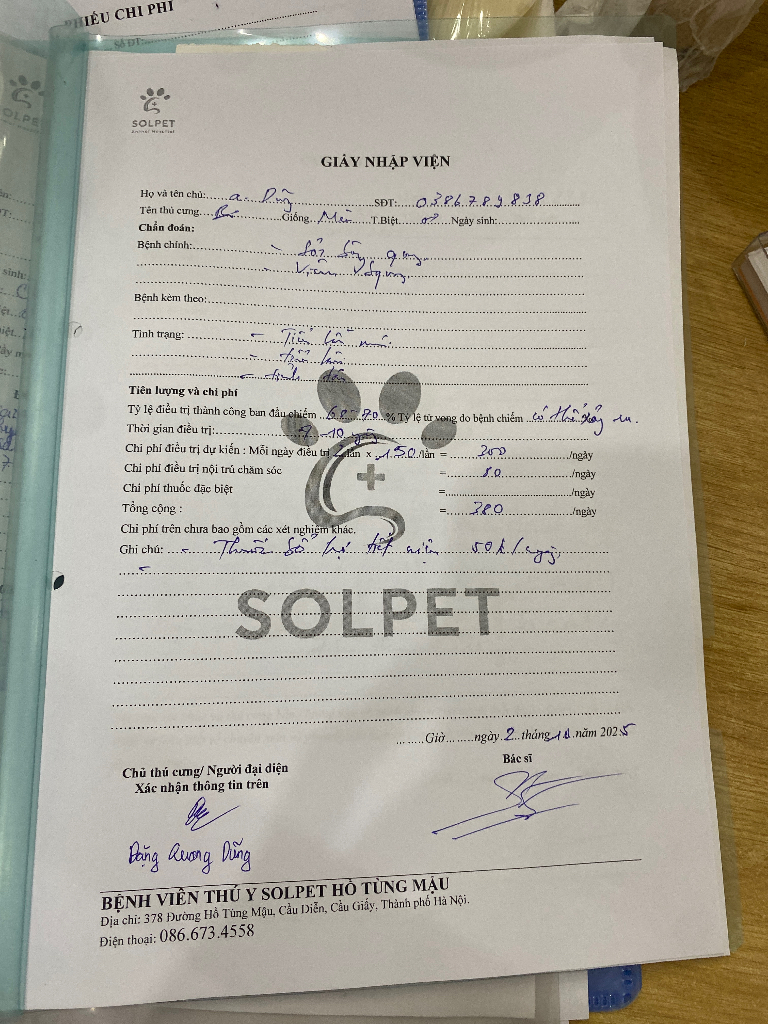 PHIẾU CHI PHÍ
Số ĐT:
SOLPET
GIẤY NHẬP VIỆN
Họ và tên chủ: a. Dũng SĐT: 0386789838
Tên thú cưng Giống Mèo T.Biệt Ngày sinh:
Chẩn đoán:
Bệnh chính: - Sỏi
- Viêm
Bệnh kèm theo:
Tình trạng: - Tiểu
- tiểu
-
Tiên lượng và chi phí
Tỷ lệ điều trị thành công ban đầu chiếm % Tỷ lệ tử vong do bệnh chiếm có thể xảy ra.
Thời gian điều trị: 10 ngày
Chi phí điều trị dự kiến : Mỗi ngày điều trị 2 lần x 150 /lần = 300 /ngày
Chi phí điều trị nội trú chăm sóc = 80 /ngày
Chi phí thuốc đặc biệt = /ngày
Tổng cộng : = 380 /ngày
Chi phí trên chưa bao gồm các xét nghiệm khác.
Ghi chú: - Thuốc hỗ trợ tiết niệu 50k/ngày
-
SOLPET
Giờ ngày 2 tháng năm 2025
Chủ thú cưng/ Người đại diện
Xác nhận thông tin trên
Bác sĩ
Đặng Quang Dũng
BỆNH VIỆN THÚ Y SOLPET HỒ TÙNG MẬU
Địa chỉ: 378 Đường Hồ Tùng Mậu, Cầu Diễn, Cầu Giấy, Thành phố Hà Nội.
Điện thoại: 086.673.4558